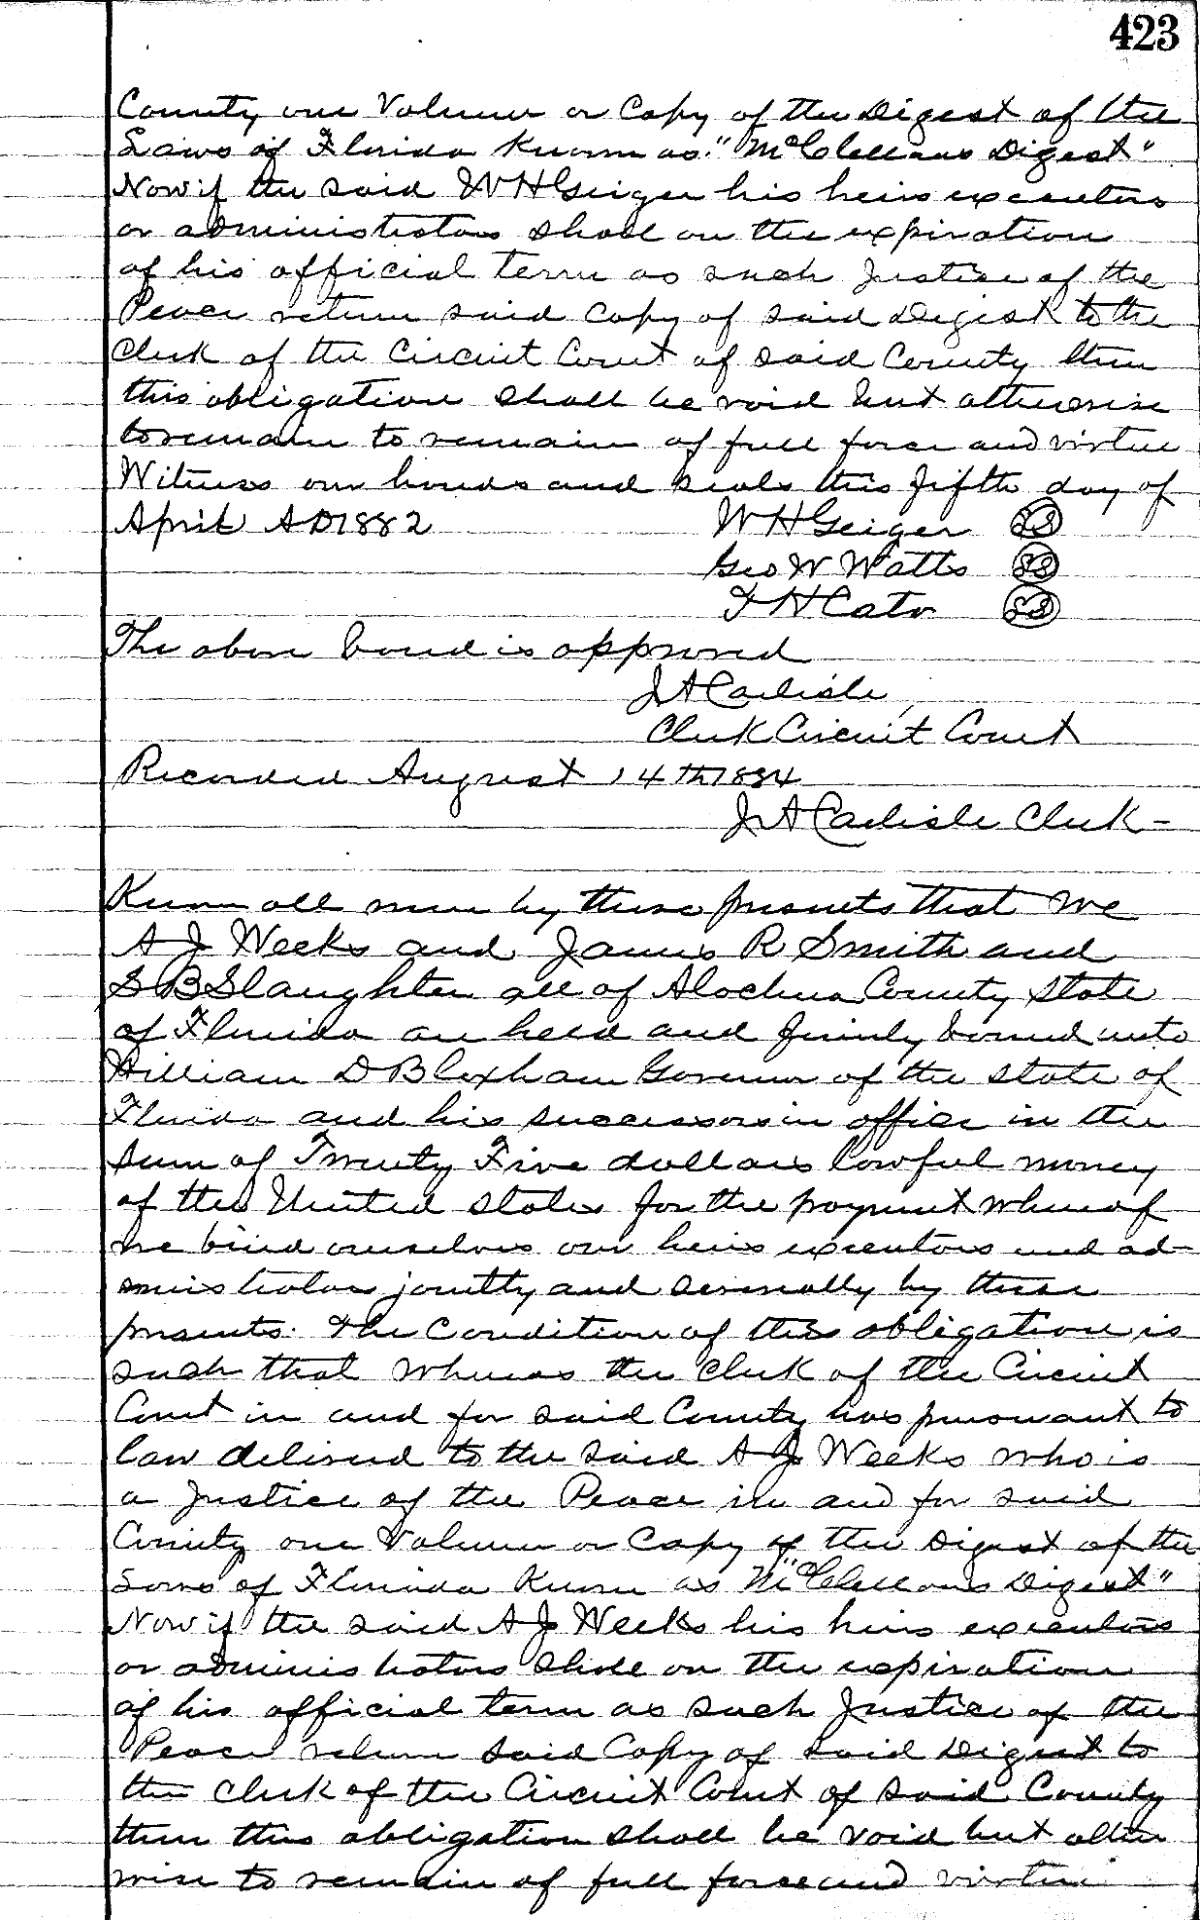 423
County one Volume or Copy of the Digest of the
Laws of Florida Known as "McClellans Digest"
Now if the said W H Geiger his heirs executors
or administrators shall on the expiration
of his official term as such Justice of the
Peace return said Copy of said Digest to the
Clerk of the Circuit Court of said County then
this obligation shall be void but otherwise
to remain to remain of full force and virtue
Witness our hands and seals this fifth day of
April AD 1882 W H Geiger LS
Geo W Watts LS
F H Cato LS
The above bond is approved
J A Carlisle,
Clerk Circuit Court
Recorded August 14th 1884
J A Carlisle Clerk -
Know all men by these presents that We
A J Weeks and James R Smith and
S B Slaughter all of Alachua County State
of Florida are held and firmly bound unto
William D Bloxham Governor of the State of
Florida and his successors in office in the
sum of Twenty Five dollars lawful money
of the United States for the payment whereof
we bind ourselves our heirs executors and ad-
ministrators jointly and severally by these
presents. The Condition of this obligation is
such that whereas the Clerk of the Circuit
Court in and for said County has pursuant to
law delivered to the said A J Weeks who is
a Justice of the Peace in and for said
County one Volume or Copy of the Digest of the
Laws of Florida Known as "McClellans Digest"
Now if the said A J Weeks his heirs executors
or administrators shall on the expiration
of his official term as such Justice of the
Peace return said Copy of said Digest to
the Clerk of the Circuit Court of said County
then this obligation shall be void but other
wise to remain of full force and virtue